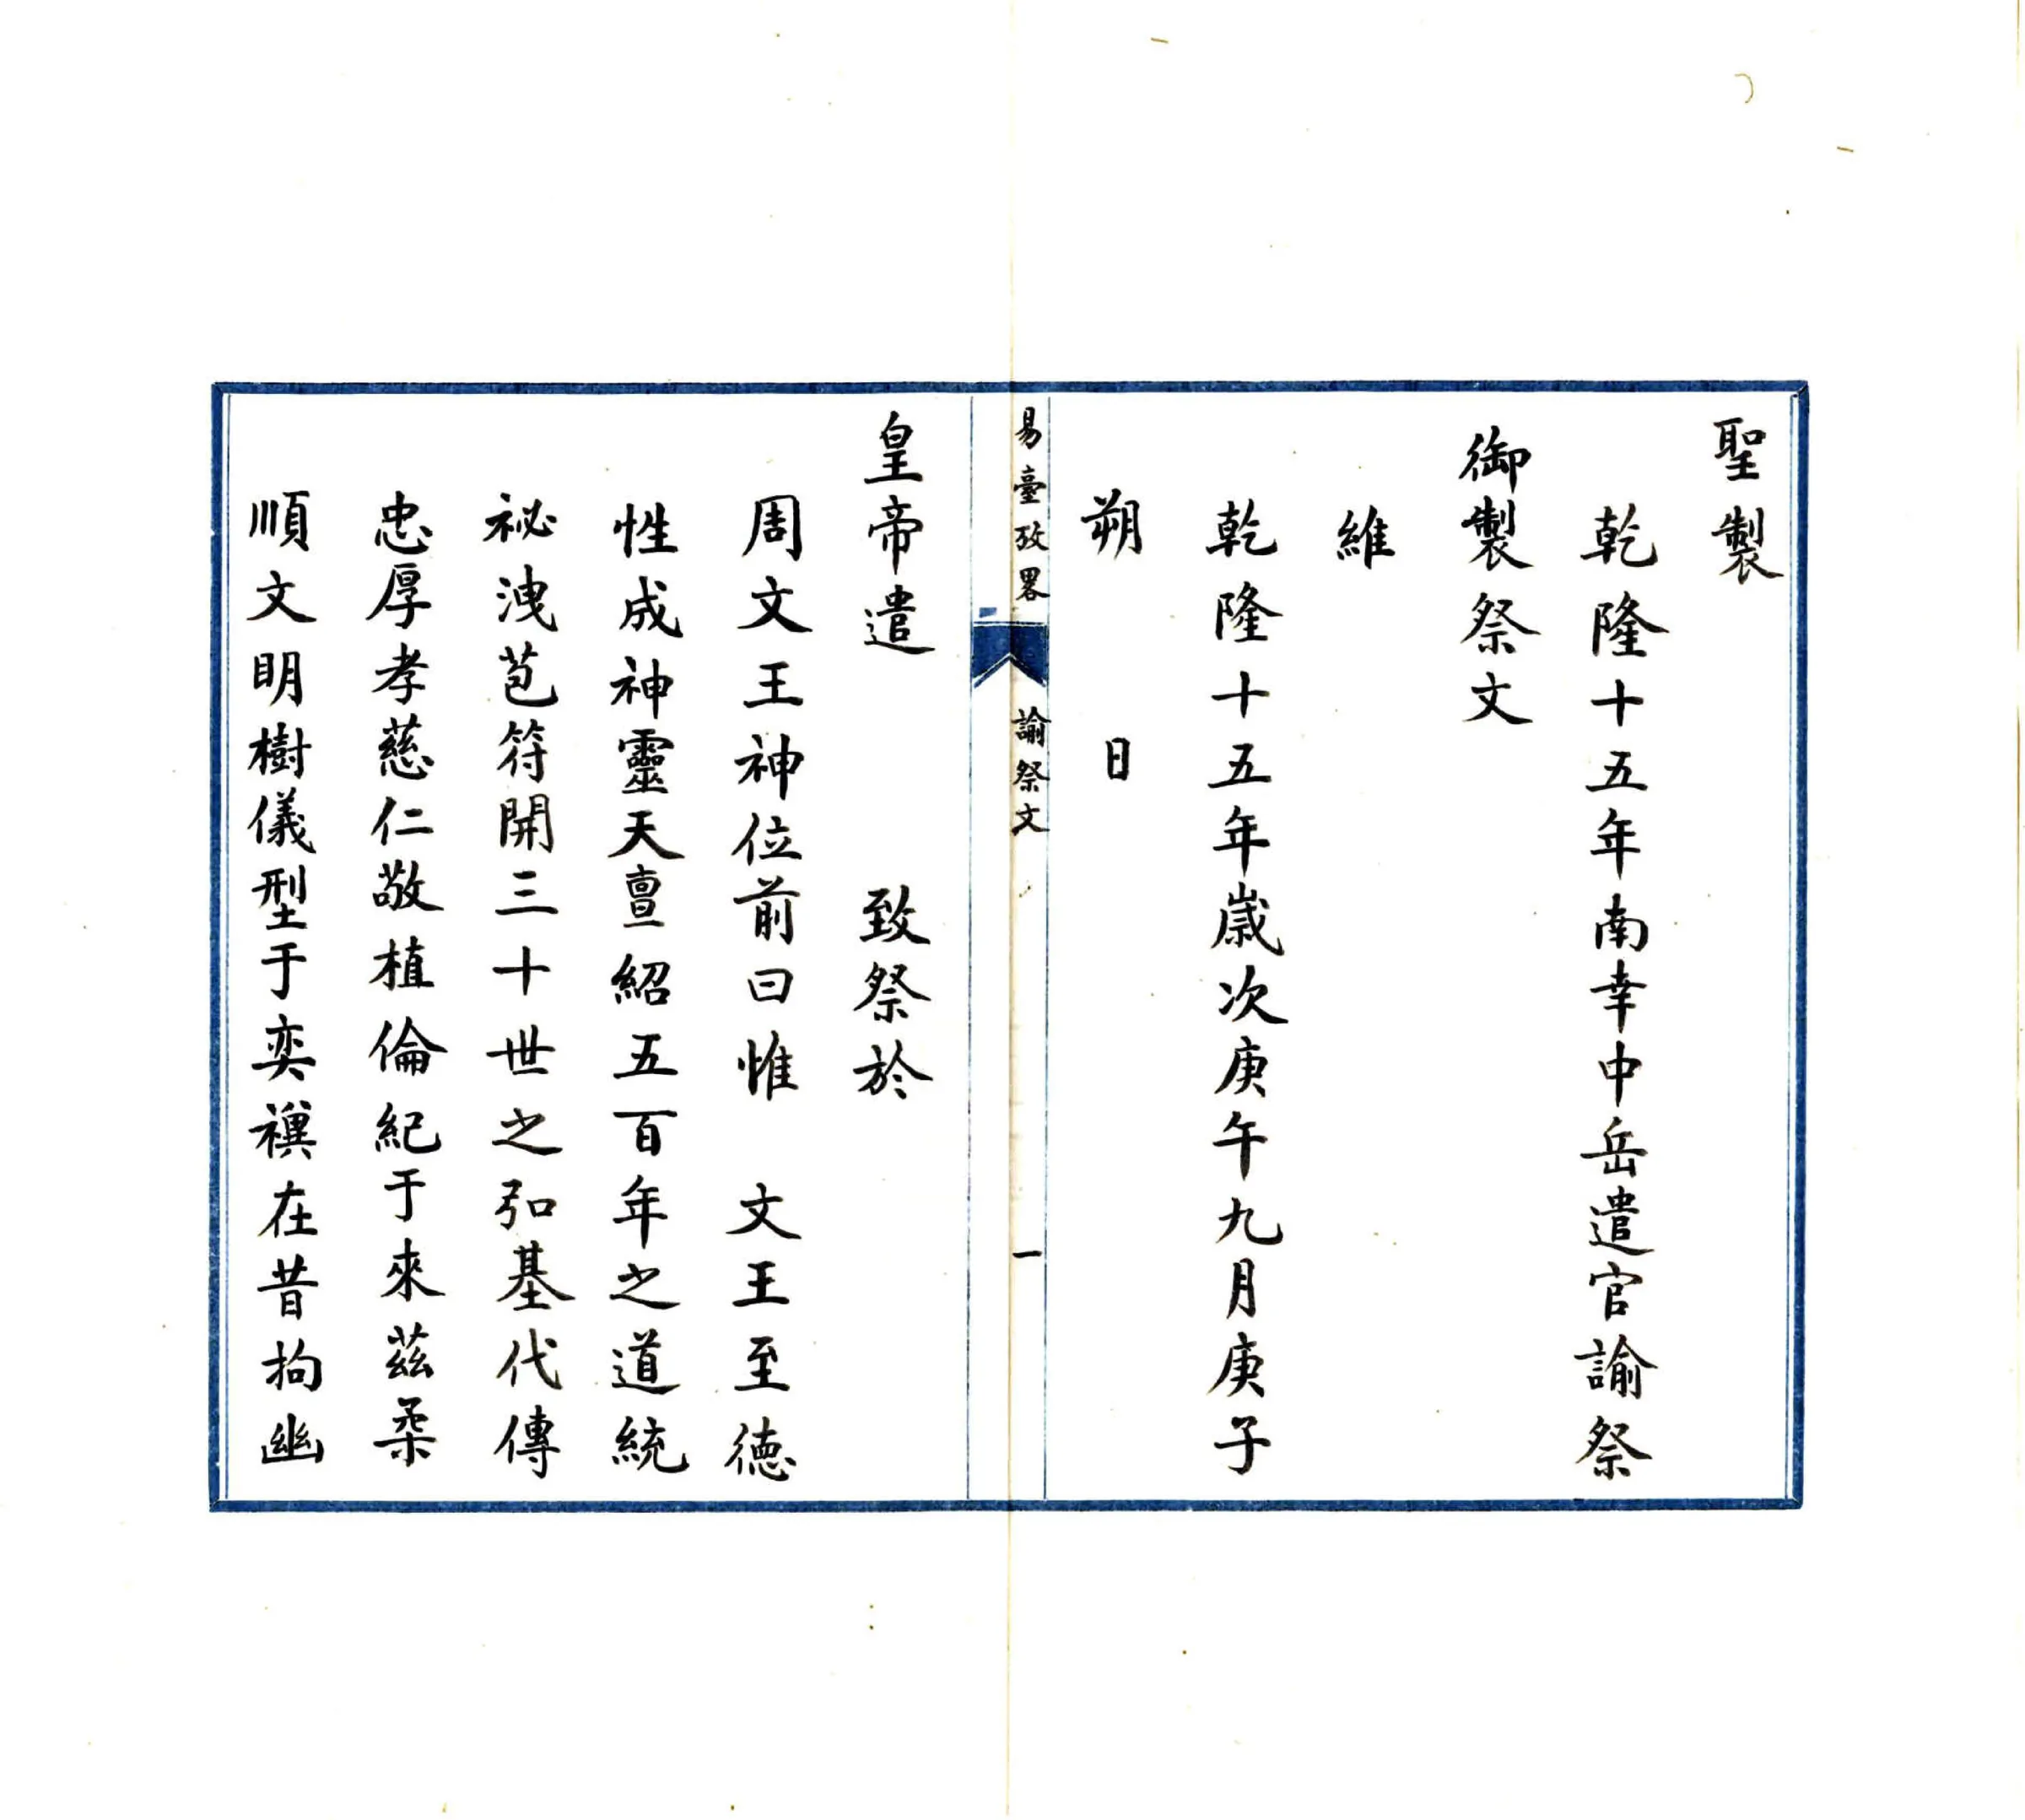 聖製
乾隆十五年南幸中岳遣官諭祭
御製祭文
維
乾隆十五年歲次庚午九月庚子
朔　　日
易臺攷畧　諭祭文　一
皇帝遣　　致祭於
周文王神位前曰惟　文王至德
性成神靈天亶紹五百年之道統
祕洩苞符開三十世之弘基代傳
忠厚孝慈仁敬植倫紀于來茲柔
順文明樹儀型于奕禩在昔拘幽